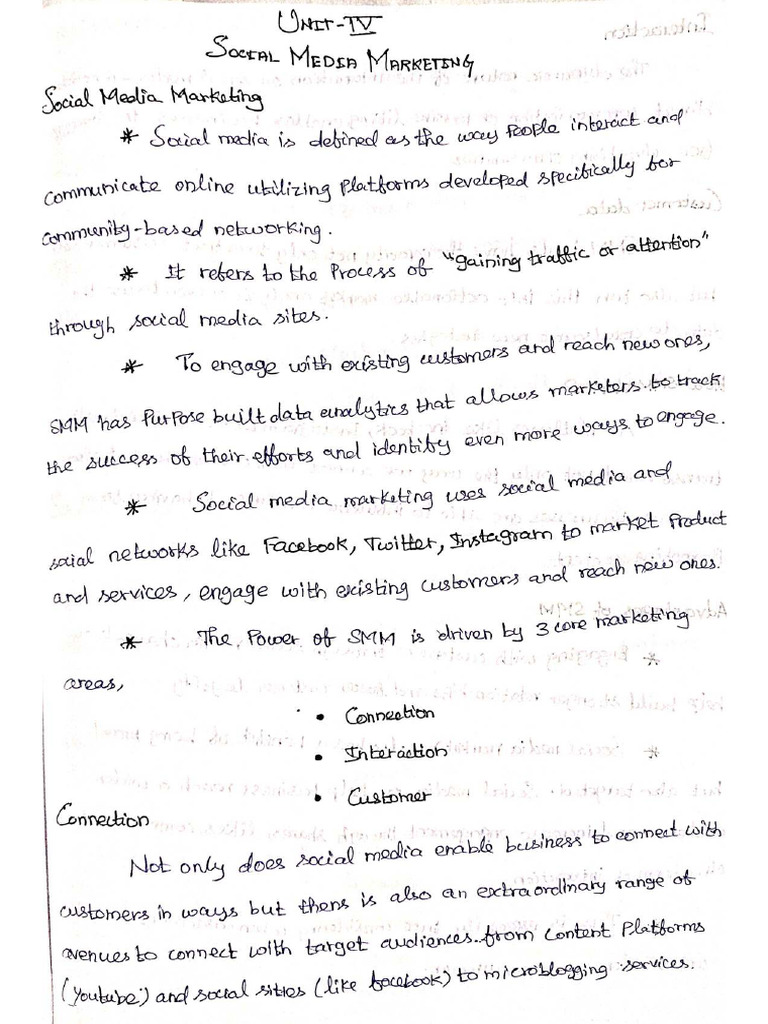 UNIT-IV
SOCIAL MEDIA MARKETING
Social Media Marketing
* Social media is defined as the way People interact and
communicate online utilizing Platforms developed specifically for
community-based networking.
* It refers to the Process of "gaining traffic or attention"
through social media sites.
* To engage with existing customers and reach new ones,
SMM has Purpose built data analytics that allows marketers to track
the success of their efforts and identify even more ways to engage.
* Social media marketing uses social media and
social networks like Facebook, Twitter, Instagram to market Product
and services, engage with existing customers and reach new ones.
* The Power of SMM is driven by 3 core marketing
areas,
• Connection
• Interaction
• Customer
Connection
Not only does social media enable business to connect with
customers in ways but thens is also an extraordinary range of
avenues to connect with target audiences..from Content Platforms
(Youtube) and social sities (like facebook) to microblogging services.